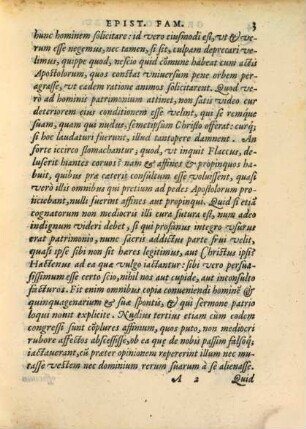 EPIST. FAM. 3
hunc hominem solicitare: id vero eiusmodi est, vt & ve-
rum esse negemus, nec tamen, si sit, culpam deprecari ve-
limus, quippe quod, nescio quid cōmune habeat cum actis
Apostolorum, quos constat vniuersum pene orbem per-
agrasse, vt eadem ratione animos solicitarent. Quod ve-
rò ad hominis patrimonium attinet, non satis video cur
deteriorem eius conditionem esse velint, qui se remque
suam, quam qui nudus, semetipsum Christo offerat: curq́;
si hoc laudaturi fuerint, illud tantopere damnent. An
forte iccirco stomachantur, quod, vt inquit Flaccus, de-
luserit hiantes coruos? nam & affines & propinquos ha-
buit, quibus præ cæteris consultum esse voluissent, quasi
verò illis omnibus qui pretium ad pedes Apostolorum pro-
iiciebant, nulli fuerint affines aut propinqui. Quid si etiā
cognatorum non mediocri illi cura futura est, num adeo
indignum videri debet, si qui profanus integro vsurus
erat patrimonio, nunc sacris addictus parte frui velit,
quasi ipse sibi non sit hæres legitimus, aut Christus ipse?
Hactenus ad ea quæ vulgo iactantur: sibi vero persua-
sissimum esse certo scio, nihil me aut cupide, aut inconsulto
facturos. Fit enim omnibus copia conueniendi hominē &
quinquagenarium & sui spontis, & qui sermone patrio
loqui norit explicite. Nudius tertius etiam cum eodem
congressi sunt cōplures affinium, quos puto, non mediocri
rubore affectos abscessisse, ob ea quæ de nobis passim falsoq́;
iactauerant, cū præter opinionem repererint illum nec mu-
tasse vestem nec dominium, rerum suarum à se alienasse.
A 2 Quid